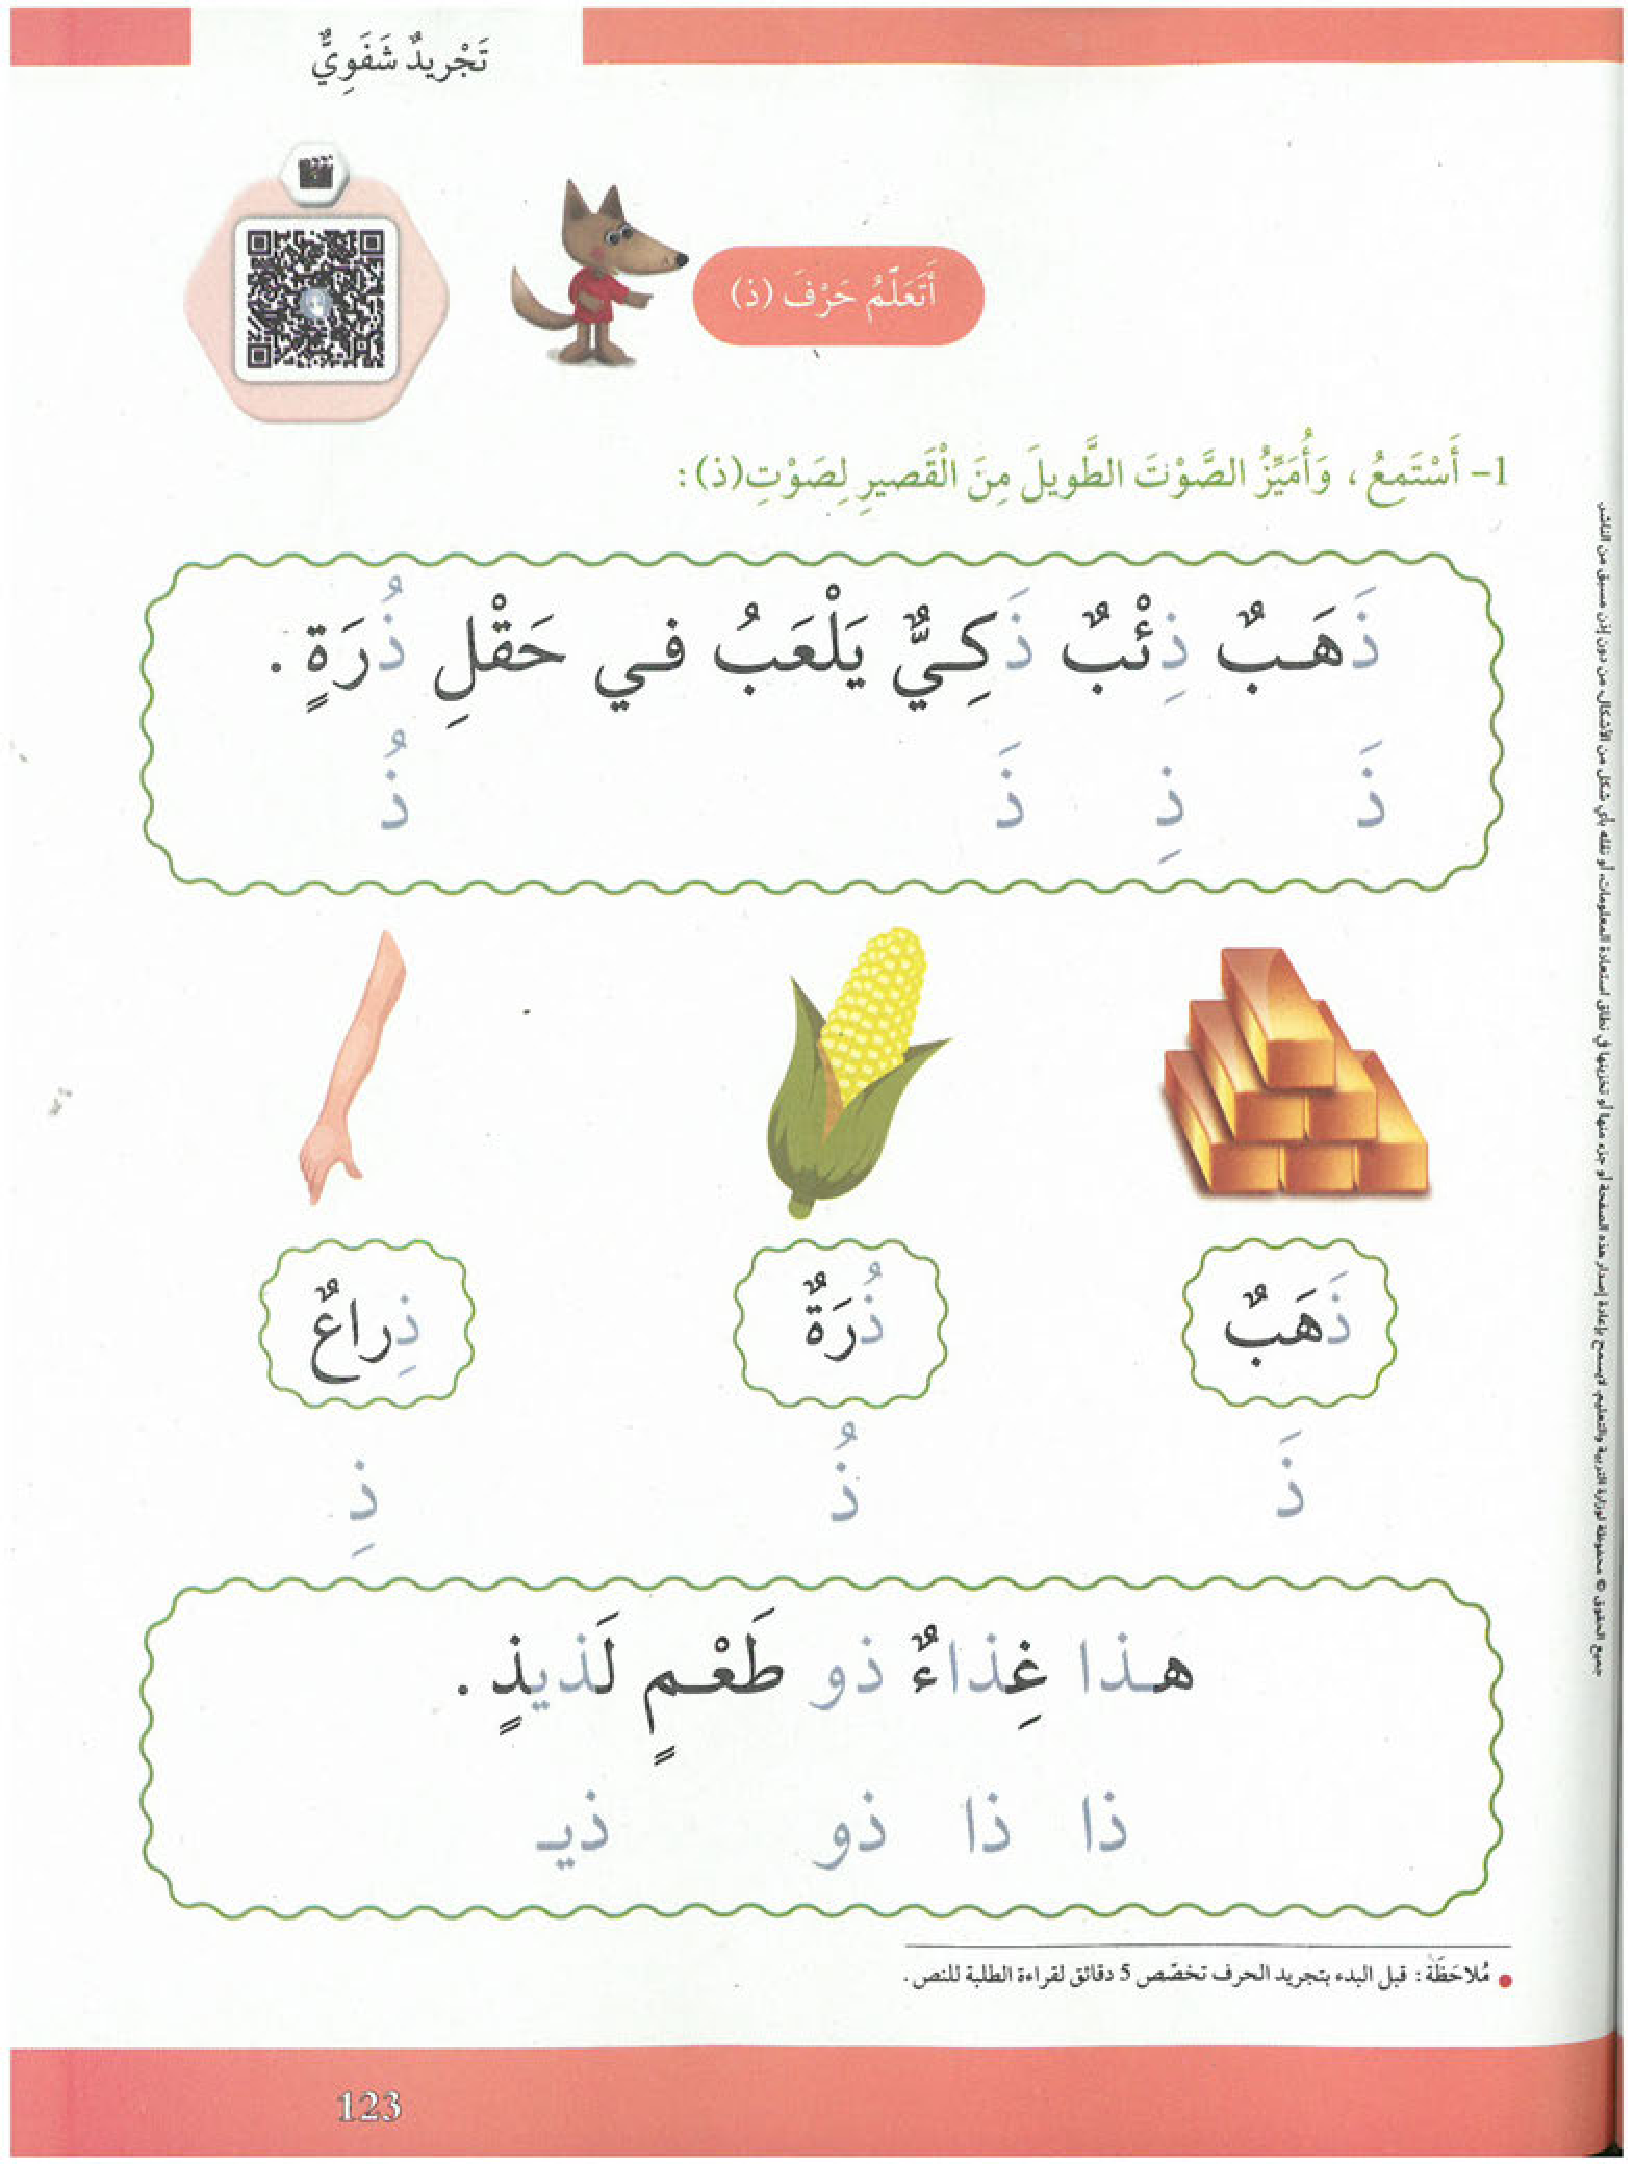 تَجْريدٌ شَفَوِيٌّ
أَتَعَلَّمُ حَرْفَ (ذ)
1- أَسْتَمِعُ ، وَأُمَيِّزُ الصَّوْتَ الطَّويلَ مِنَ الْقَصيرِ لِصَوْتِ(ذ) :
ذَهَبٌ ذِئْبٌ ذَكِيٌّ يَلْعَبُ في حَقْلِ ذُرَةٍ .
ذَ ذِ ذَ ذُ
ذَهَبٌ ذُرَةٌ ذِراعٌ
ذَ ذُ ذِ
هـذا غِذاءٌ ذو طَعْمٍ لَذيذٍ .
ذا ذا ذو ذيـ
مُلاحَظَة : قبل البدء بتجريد الحرف تخصّص 5 دقائق لقراءة الطلبة للنص .
123
جميع الحقوق © محفوظة لوزارة التربية والتعليم. لايسمح بإعادة إصدار هذه الصفحة أو جزء منها أو تخزينها في نطاق استعادة المعلومات، أو نقله بأي شكل من الأشكال، من دون إذن مسبق من الناشر.